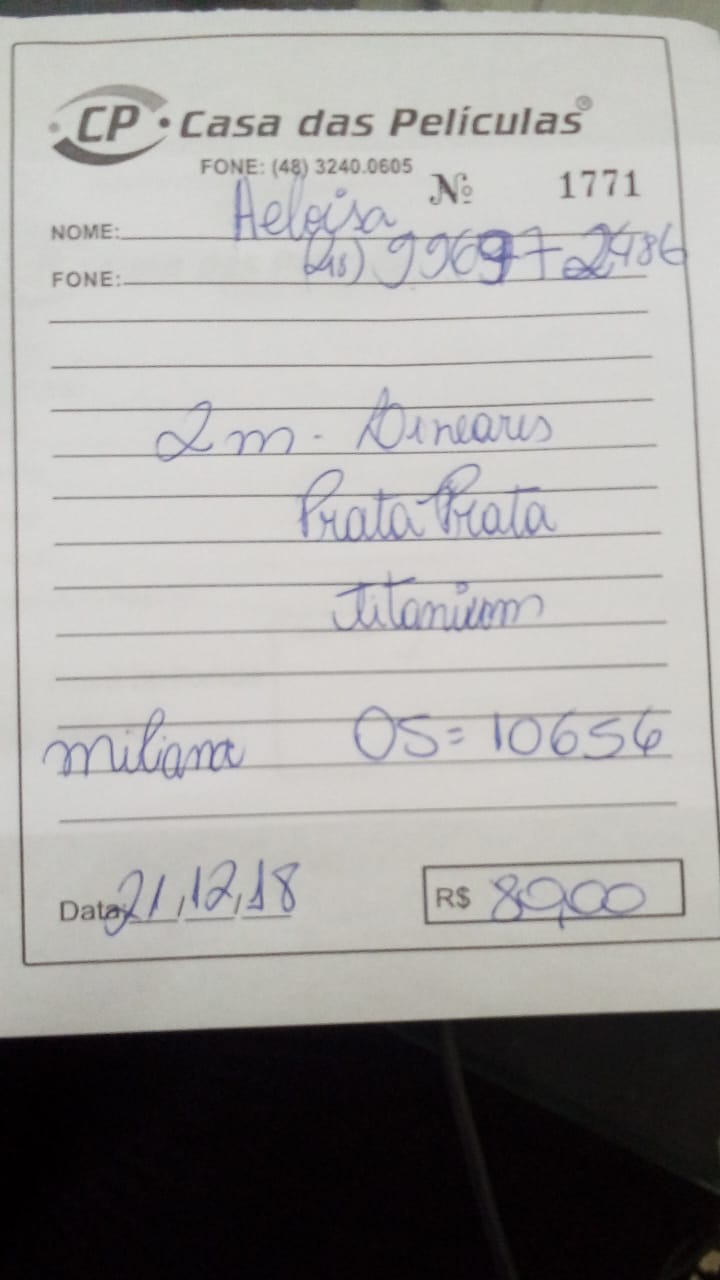 CP · Casa das Películas®
FONE: (48) 3240.0605
Nº 1771
NOME: Heloisa
FONE: (48) 99697-2486
2m - Lineares
Prata Prata
Titanium
OS = 10656
Data: 21,12,18
R$ 89,00